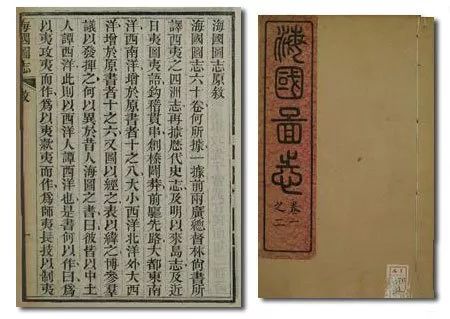 海國圖志原敘
海國圖志六十卷何所據一據前兩廣總督林尚書所
譯西夷之四洲志再據歷代史志及明以來島志及近
日夷圖夷語鉤稽貫串創榛闢莽前驅先路大都東南
洋西南洋增於原書者十之八大小西洋北洋外大西
洋增於原書者十之六又圖以經之表以緯之博參羣
議以發揮之何以異於昔人海圖之書曰彼皆以中土
人譚西洋此則以西洋人譚西洋也是書何以作曰為
以夷攻夷而作為以夷款夷而作為師夷長技以制夷
海國圖志 敘
海國圖志
卷一
之二